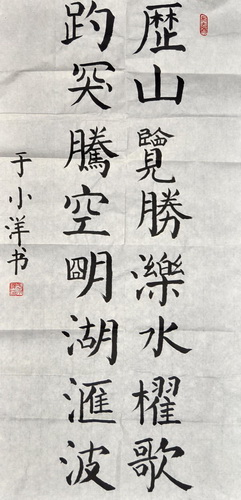 歷山覽勝濼水櫂歌
趵突騰空明湖滙波
于小洋书